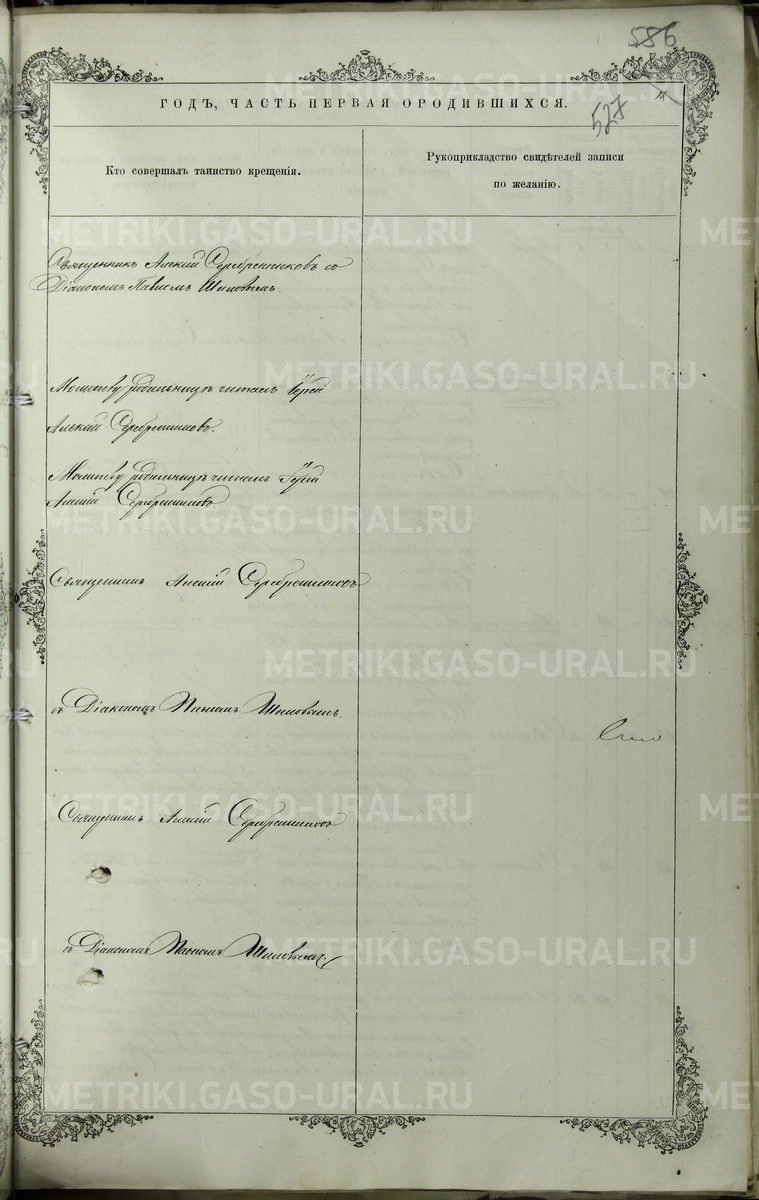 556
527
ГОДЪ, ЧАСТЬ ПЕРВАЯ О РОДИВШИХСЯ.
Кто совершалъ таинство крещенія.
Рукоприкладство свидѣтелей записи
по желанію.
Священникъ Алексій Серебренниковъ со
Діакономъ Павломъ Шиловымъ.
Молитву родильницѣ читалъ Іерей
Алексій Серебренниковъ.
Молитву родильницѣ читалъ Іерей
Алексій Серебренниковъ.
Священникъ Алексій Серебренниковъ
съ Діакономъ Павломъ Шиловымъ.
Священникъ Алексій Серебренниковъ
съ Діакономъ Павломъ Шиловымъ.
METRIKI.GASO-URAL.RU